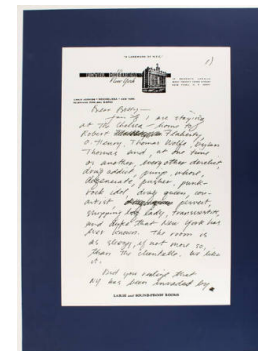 1)
New York
Dear Barry—
Jan & I are staying
at The Chelsea - home of
Robert Flaherty,
O. Henry, Thomas Wolfe, Dylan
Thomas and, at one time
or another, every other derelict,
drug addict, pimp, whore,
degenerate, pusher, punk-
rock idol, drag queen, con-
artist, pervert,
shopping bag lady, transvestite,
and dyke that New York has
ever known. The room is
as sleazy, if not more so,
than the clientelle. We like
it.
Did you realize that
NY has been invaded by
LARGE and SOUND-PROOF ROOMS